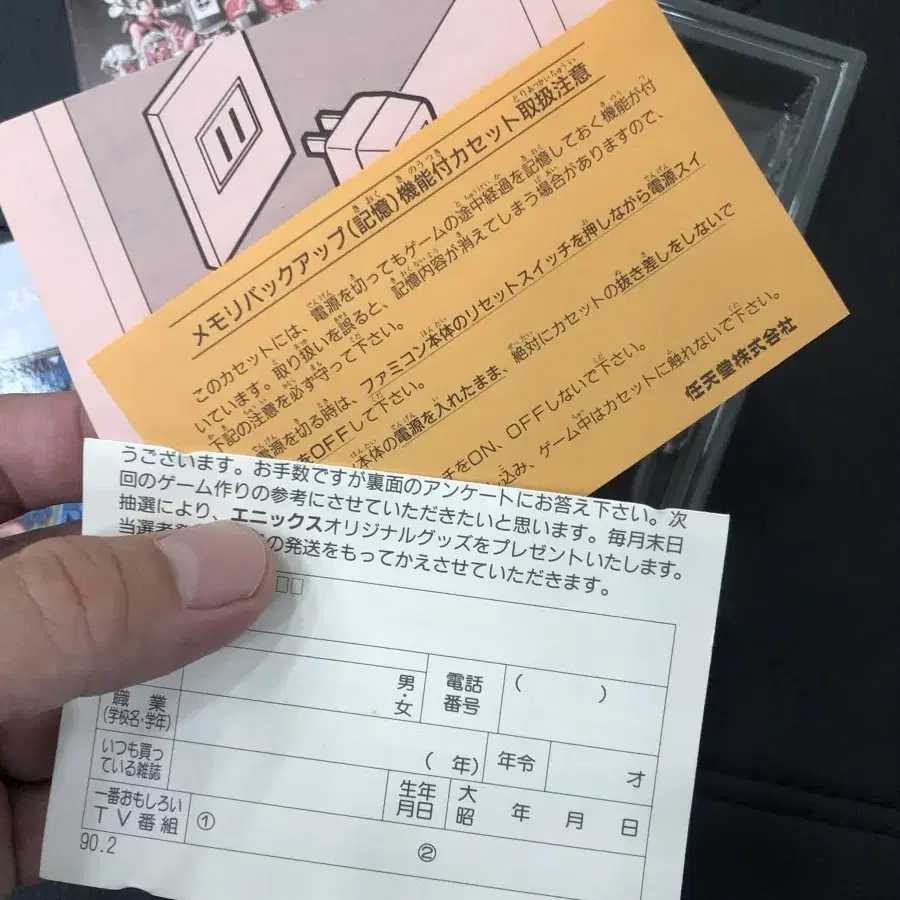 メモリバックアップ(記憶)機能付カセット取扱注意
このカセットには、電源を切ってもゲームの途中経過を記憶しておく機能が付
いています。取り扱いを誤ると、記憶内容が消えてしまう場合がありますので、
下記の注意を必ず守って下さい。
電源を切る時は、ファミコン本体のリセットスイッチを押しながら電源スイ
をOFFして下さい。
本体の電源を入れたまま、絶対にカセットの抜き差しをしないで
チをON、OFFしないで下さい。
込み、ゲーム中はカセットに触れないで下さい。
任天堂株式会社
うございます。お手数ですが裏面のアンケートにお答え下さい。次
回のゲーム作りの参考にさせていただきたいと思います。毎月末日
抽選により、エニックスオリジナルグッズをプレゼントいたします。
当選者発 の発送をもってかえさせていただきます。
男・女
電話番号
( )
職業
(学校名・学年)
いつも買っ
ている雑誌
( 年)
年令
才
一番おもしろい
TV番組
①
生年
月日
大
昭
年 月 日
②
90.2